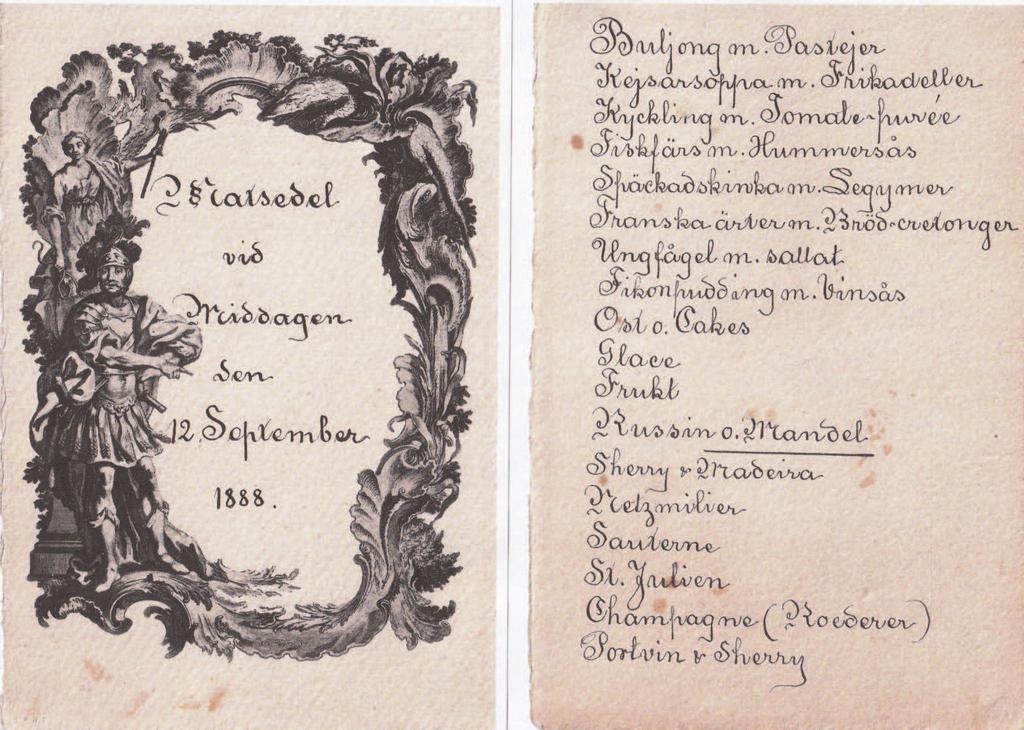 Matsedel
vid
Middagen
den
12. September
1888.
Buljong m. Pastejer
Kejsarsoppa m. Frikadeller
Kyckling m. Tomate-purée
Fiskfärs m. Hummersås
Späckadskinka m. Legymer
Franska ärter m. Bröd-cretonger
Ungfågel m. sallat
Fikonpudding m. Vinsås
Ost o. Cakes
Glace
Frukt
Russin o. Mandel
Sherry & Madeira
Metzmilier
Sauterne
St. Julien
Champagne (Roederer)
Portvin & Sherry